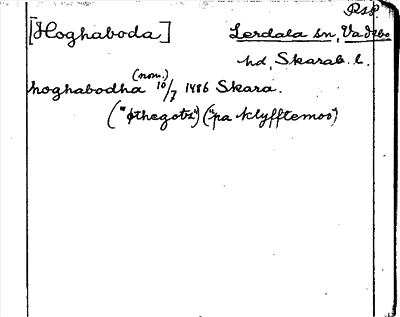 Rsp.
[Hoghaboda] Lerdala sn, Vadsbo
hd, Skarab. l.
(nom.)
hoghabodha 10/7 1486 Skara.
("øthegotz") ("pa klyfftemoo")